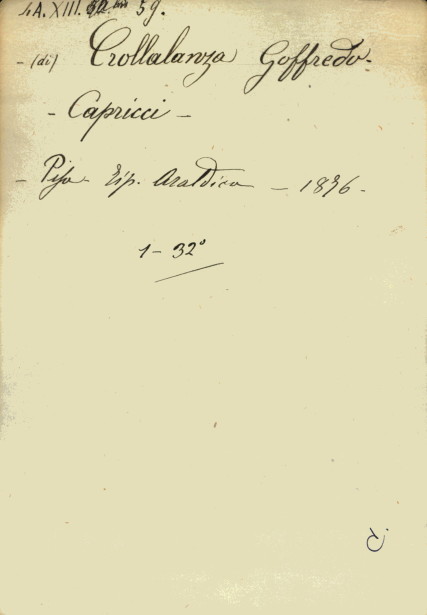 4A. XIII. 32.bis 59.
- (di) Crollalanza Goffredo.
- Capricci -
- Pisa Tip. Araldica - 1876 -
1 - 32°